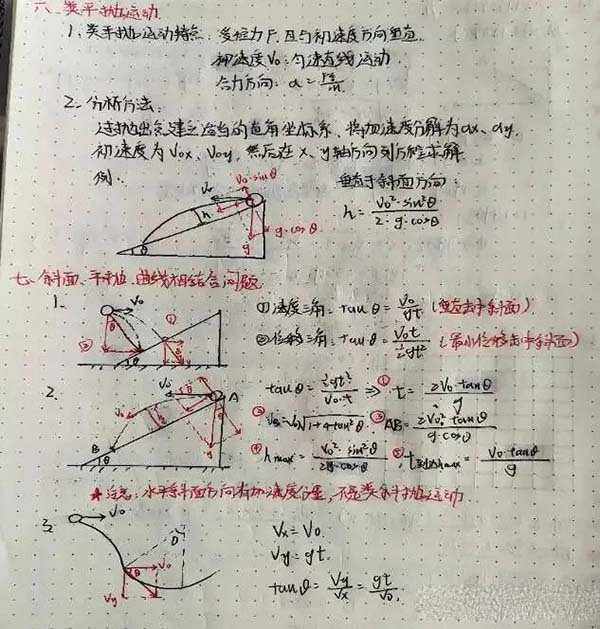 六、类平抛运动
1、类平抛运动特点: 受恒力F, 且与初速度方向垂直.
初速度V₀: 匀速直线运动.
合力方向: a=F合/m.
2、分析方法:
过抛出点建立适当的直角坐标系, 将加速度分解为ax、ay,
初速度为V₀x、V₀y, 然后在x、y轴方向列方程求解.
例:
V₀ V₀·sinθ
h θ g g·cosθ
垂直于斜面方向:
h=V₀²·sin²θ/2·g·cosθ
七、斜面、平抛、曲线相结合问题
1.
V₀ θ ① ② θ
①速度三角: tanθ=V₀/gt (垂直击中斜面)
②位移三角: tanθ=V₀t/½gt² (最小位移击中斜面)
2.
V₀ θ A V₀ h g B θ
tanθ=½gt²/V₀·t ⇒ ① t=2V₀·tanθ/g
② VB=V₀√1+4tan²θ ③ AB=2V₀²tanθ/g·cosθ
④ hmax=V₀²·sin²θ/2g·cosθ ⑤ t到达hmax=V₀·tanθ/g
★注意: 水平斜面方向有加速度分量, 不是类平抛运动
3.
V₀ θ V₀ θ Vy
Vx=V₀.
Vy=gt.
tanθ=Vy/Vx=gt/V₀.